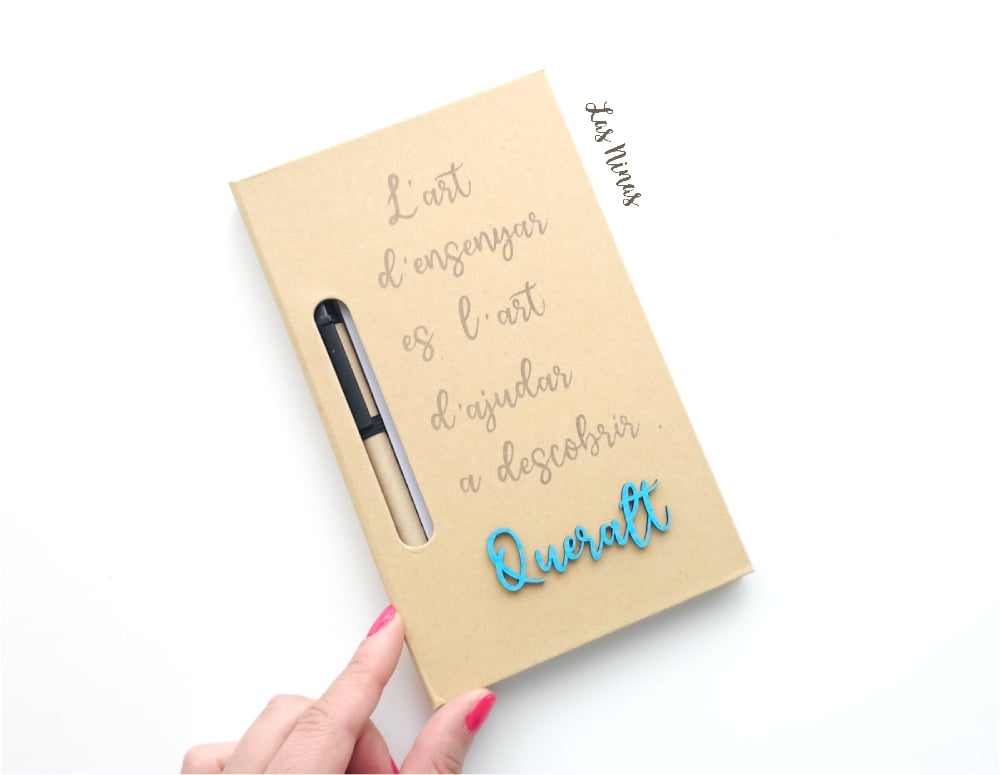 L'art
d'ensenyar
es l'art
d'ajudar
a descobrir .
Queralt
Las Ninas